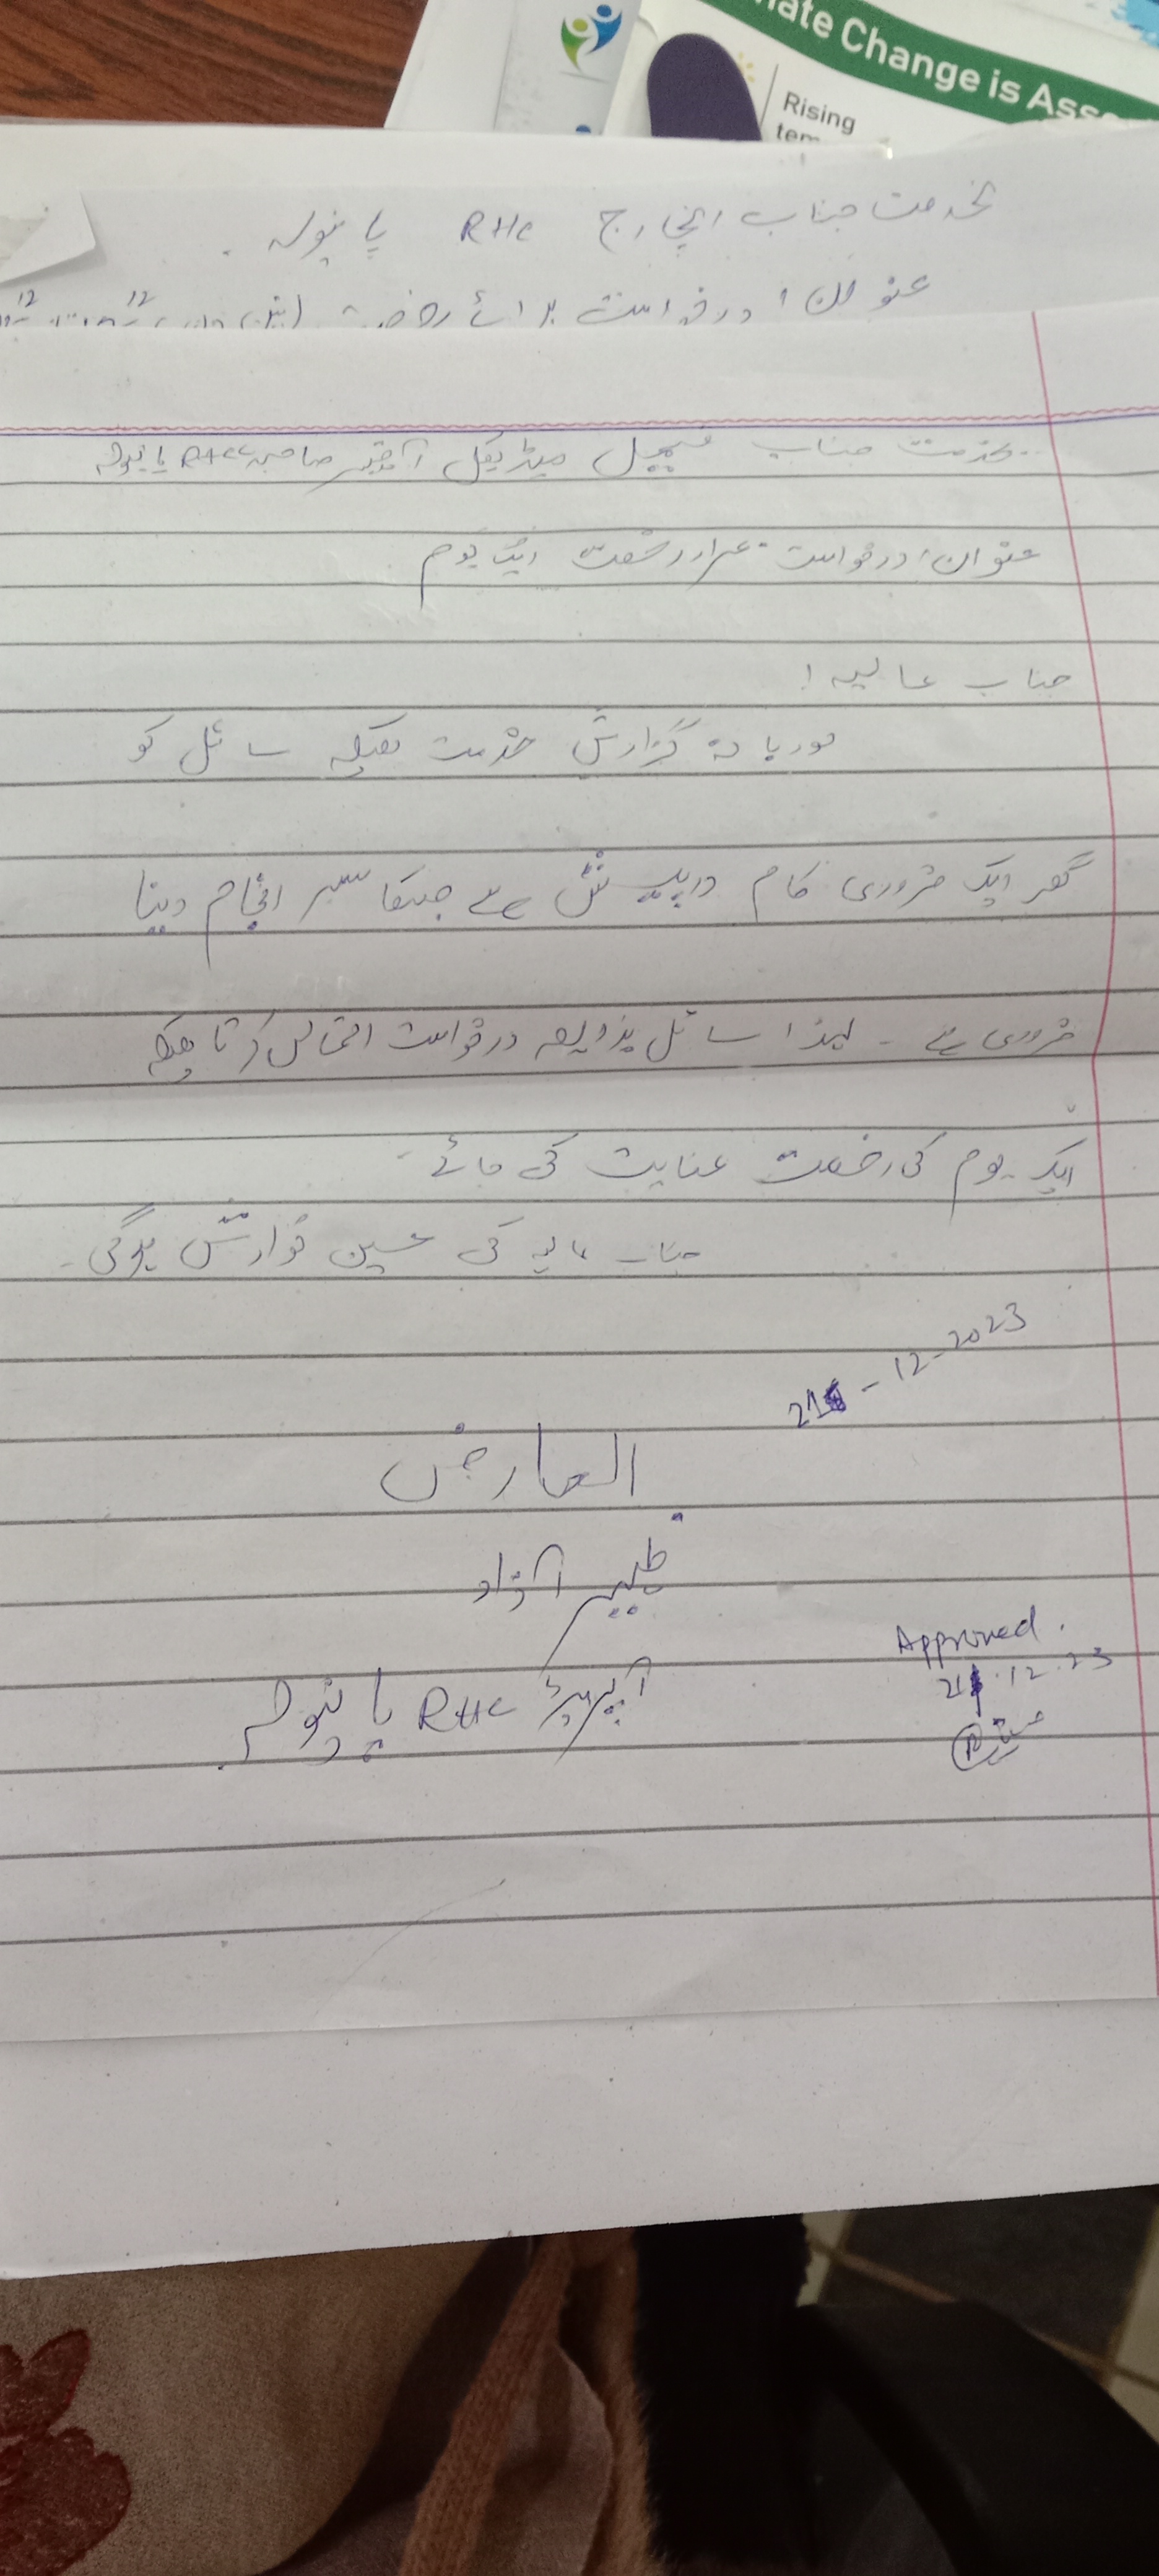 ate Change is Ass
Rising
tem
بخدمت جناب انچارج RHC پانیولہ
عنوان: درخواست برائے رخصت
بخدمت جناب فیمیل میڈیکل آفیسر صاحبہ RHC پانیولہ
عنوان: درخواست رخصت ایک یوم
جناب عالیہ!
مودبانہ گزارش خدمت ہیکہ سائل کو
گھر ایک ضروری کام درپیش ہے جسکا انجام دینا
ضروری ہے۔ لہذا سائل بذریعہ درخواست التماس کرتا ہیکہ
ایک یوم کی رخصت عنایت کی جائے۔
جناب عالیہ کی عین نوازش ہوگی۔
21-12-2023
العارض
ظہیر آزاد
آپریٹر RHC پانیولہ
Approved.
21.12.23